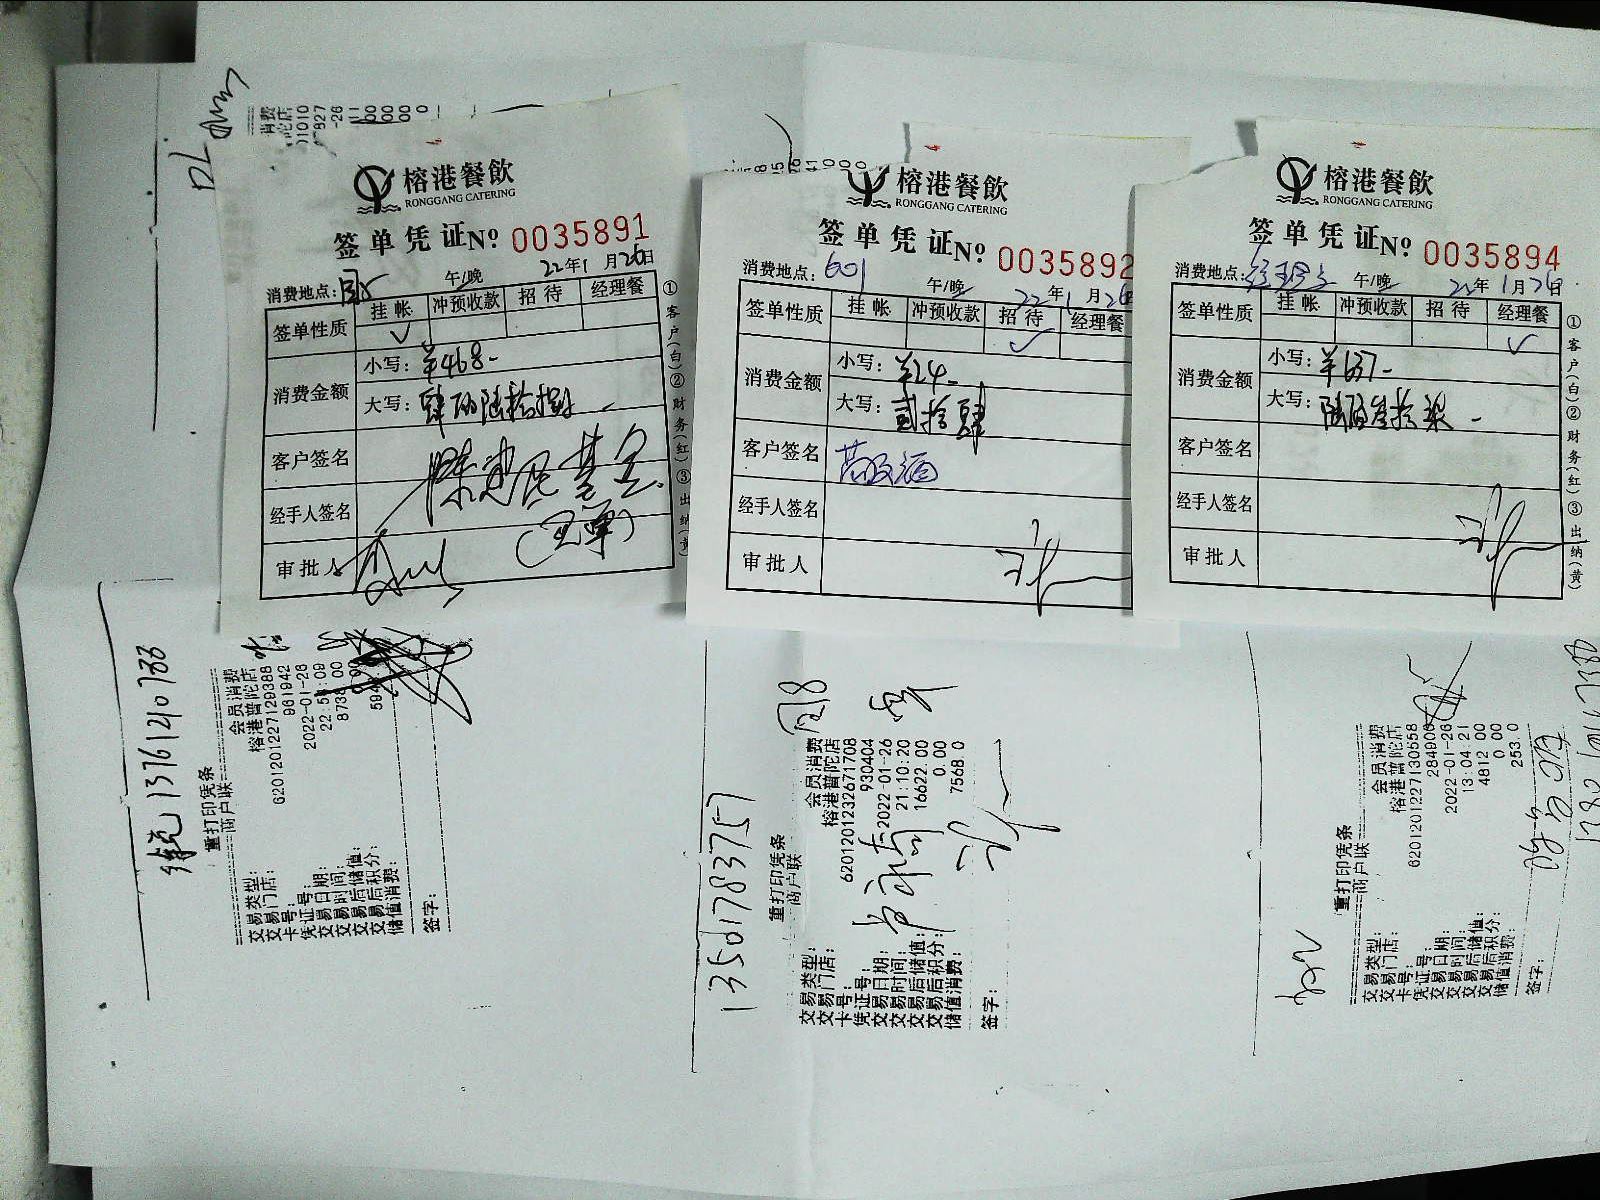 榕港餐飲
RONGGANG CATERING
签单凭证 Nº 0035891
消费地点: 午/晚 22年1月26日
签单性质 挂帐 冲预收款 招待 经理餐
✓
消费金额
小写: ¥468-
大写: 肆佰陆拾捌
客户签名
经手人签名
审批人
①客户(白)②财务(红)③出纳(黄)
榕港餐飲
RONGGANG CATERING
签单凭证 Nº 0035892
消费地点: 601 午/晚 22年1月26
签单性质 挂帐 冲预收款 招待 经理餐
✓
消费金额
小写: ¥24-
大写: 贰拾肆
客户签名
经手人签名
审批人
榕港餐飲
RONGGANG CATERING
签单凭证 Nº 0035894
消费地点: 午/晚 22年1月26日
签单性质 挂帐 冲预收款 招待 经理餐
✓
消费金额
小写: ¥637-
大写: 陆佰叁拾柒-
客户签名
经手人签名
审批人
①客户(白)②财务(红)③出纳(黄)
13761210733
重打印凭条
商户联
交易类型: 会员消费
交易门店: 榕港普陀店
卡号: 6201201227129388
凭证号: 961942
交易日期: 2022-01-26
交易时间:
交易后储值:
交易后积分:
储值消费:
签字:
13501783757
重打印凭条
商户联
交易类型: 会员消费
交易门店: 榕港普陀店
卡号: 6201201232671708
凭证号: 930404
交易日期: 2022-01-26
交易时间: 21:10:20
交易后储值: 16622.00
交易后积分: 0.00
储值消费: 7568.0
签字:
重打印凭条
商户联
交易类型: 会员消费
交易门店: 榕港普陀店
卡号: 6201201227130558
凭证号: 284908
交易日期: 2022-01-26
交易时间: 13:04:21
交易后储值: 4812.00
交易后积分: 0.00
储值消费: 253.0
签字: